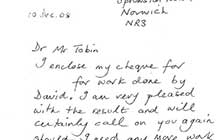 Norwich
NR3
10 Dec. 08
Dr Mr Tobin
I enclose my cheque for
for work done by
David, I am very pleased
with the result and will
certainly call on you again
should I need any more work